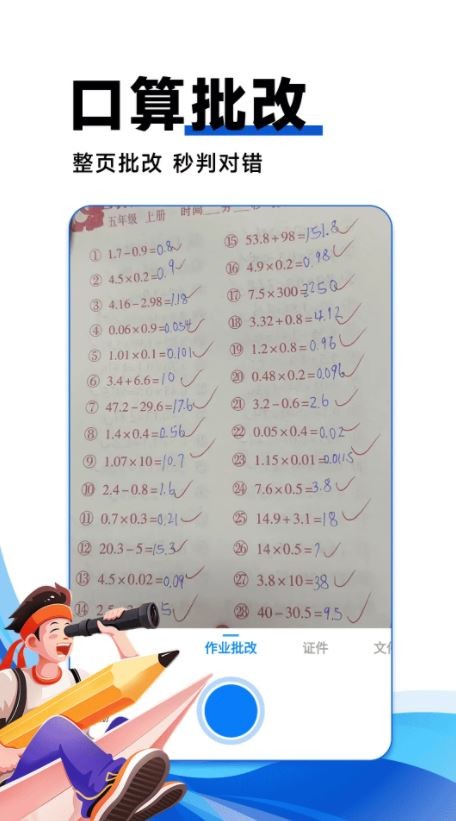 口算批改
整页批改 秒判对错
五年级 上册 时间 分
① 1.7-0.9=0.8
② 4.5×0.2=0.9
③ 4.16-2.98=1.18
④ 0.06×0.9=0.054
⑤ 1.01×0.1=0.101
⑥ 3.4+6.6=10
⑦ 47.2-29.6=17.6
⑧ 1.4×0.4=0.56
⑨ 1.07×10=10.7
⑩ 2.4-0.8=1.6
⑪ 0.7×0.3=0.21
⑫ 20.3-5=15.3
⑬ 4.5×0.02=0.09
⑭
⑮ 53.8+98=151.8
⑯ 4.9×0.2=0.98
⑰ 7.5×300=2250
⑱ 3.32+0.8=4.12
⑲ 1.2×0.8=0.96
⑳ 0.48×0.2=0.096
㉑ 3.2-0.6=2.6
㉒ 0.05×0.4=0.02
㉓ 1.15×0.01=0.0115
㉔ 7.6×0.5=3.8
㉕ 14.9+3.1=18
㉖ 14×0.5=7
㉗ 3.8×10=38
㉘ 40-30.5=9.5
作业批改 证件